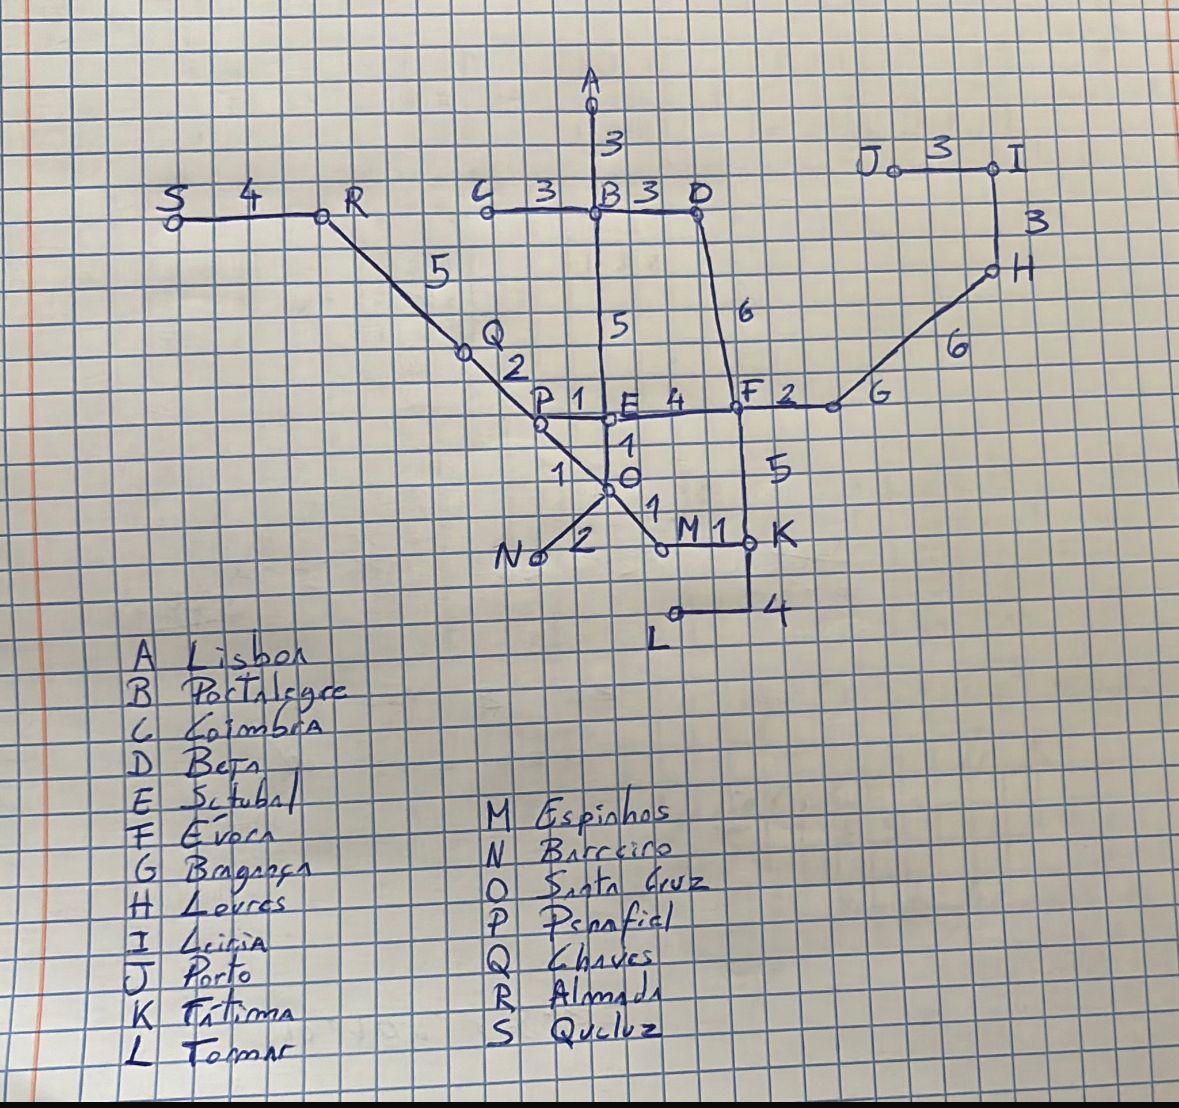 A
3
J 3 I
S 4 R C 3 B 3 D
3
5 H
Q 5 6
2 6
P 1 E 4 F 2 G
1
1 O 5
1
N 2 M 1 K
L 4
A Lisboa
B Portalegre
C Coimbra
D Beja
E Setubal
F Évora
G Bragança
H Loures
I Leiria
J Porto
K Fátima
L Tomar
M Espinhos
N Barreiro
O Santa Cruz
P Penafiel
Q Chaves
R Almada
S Queluz